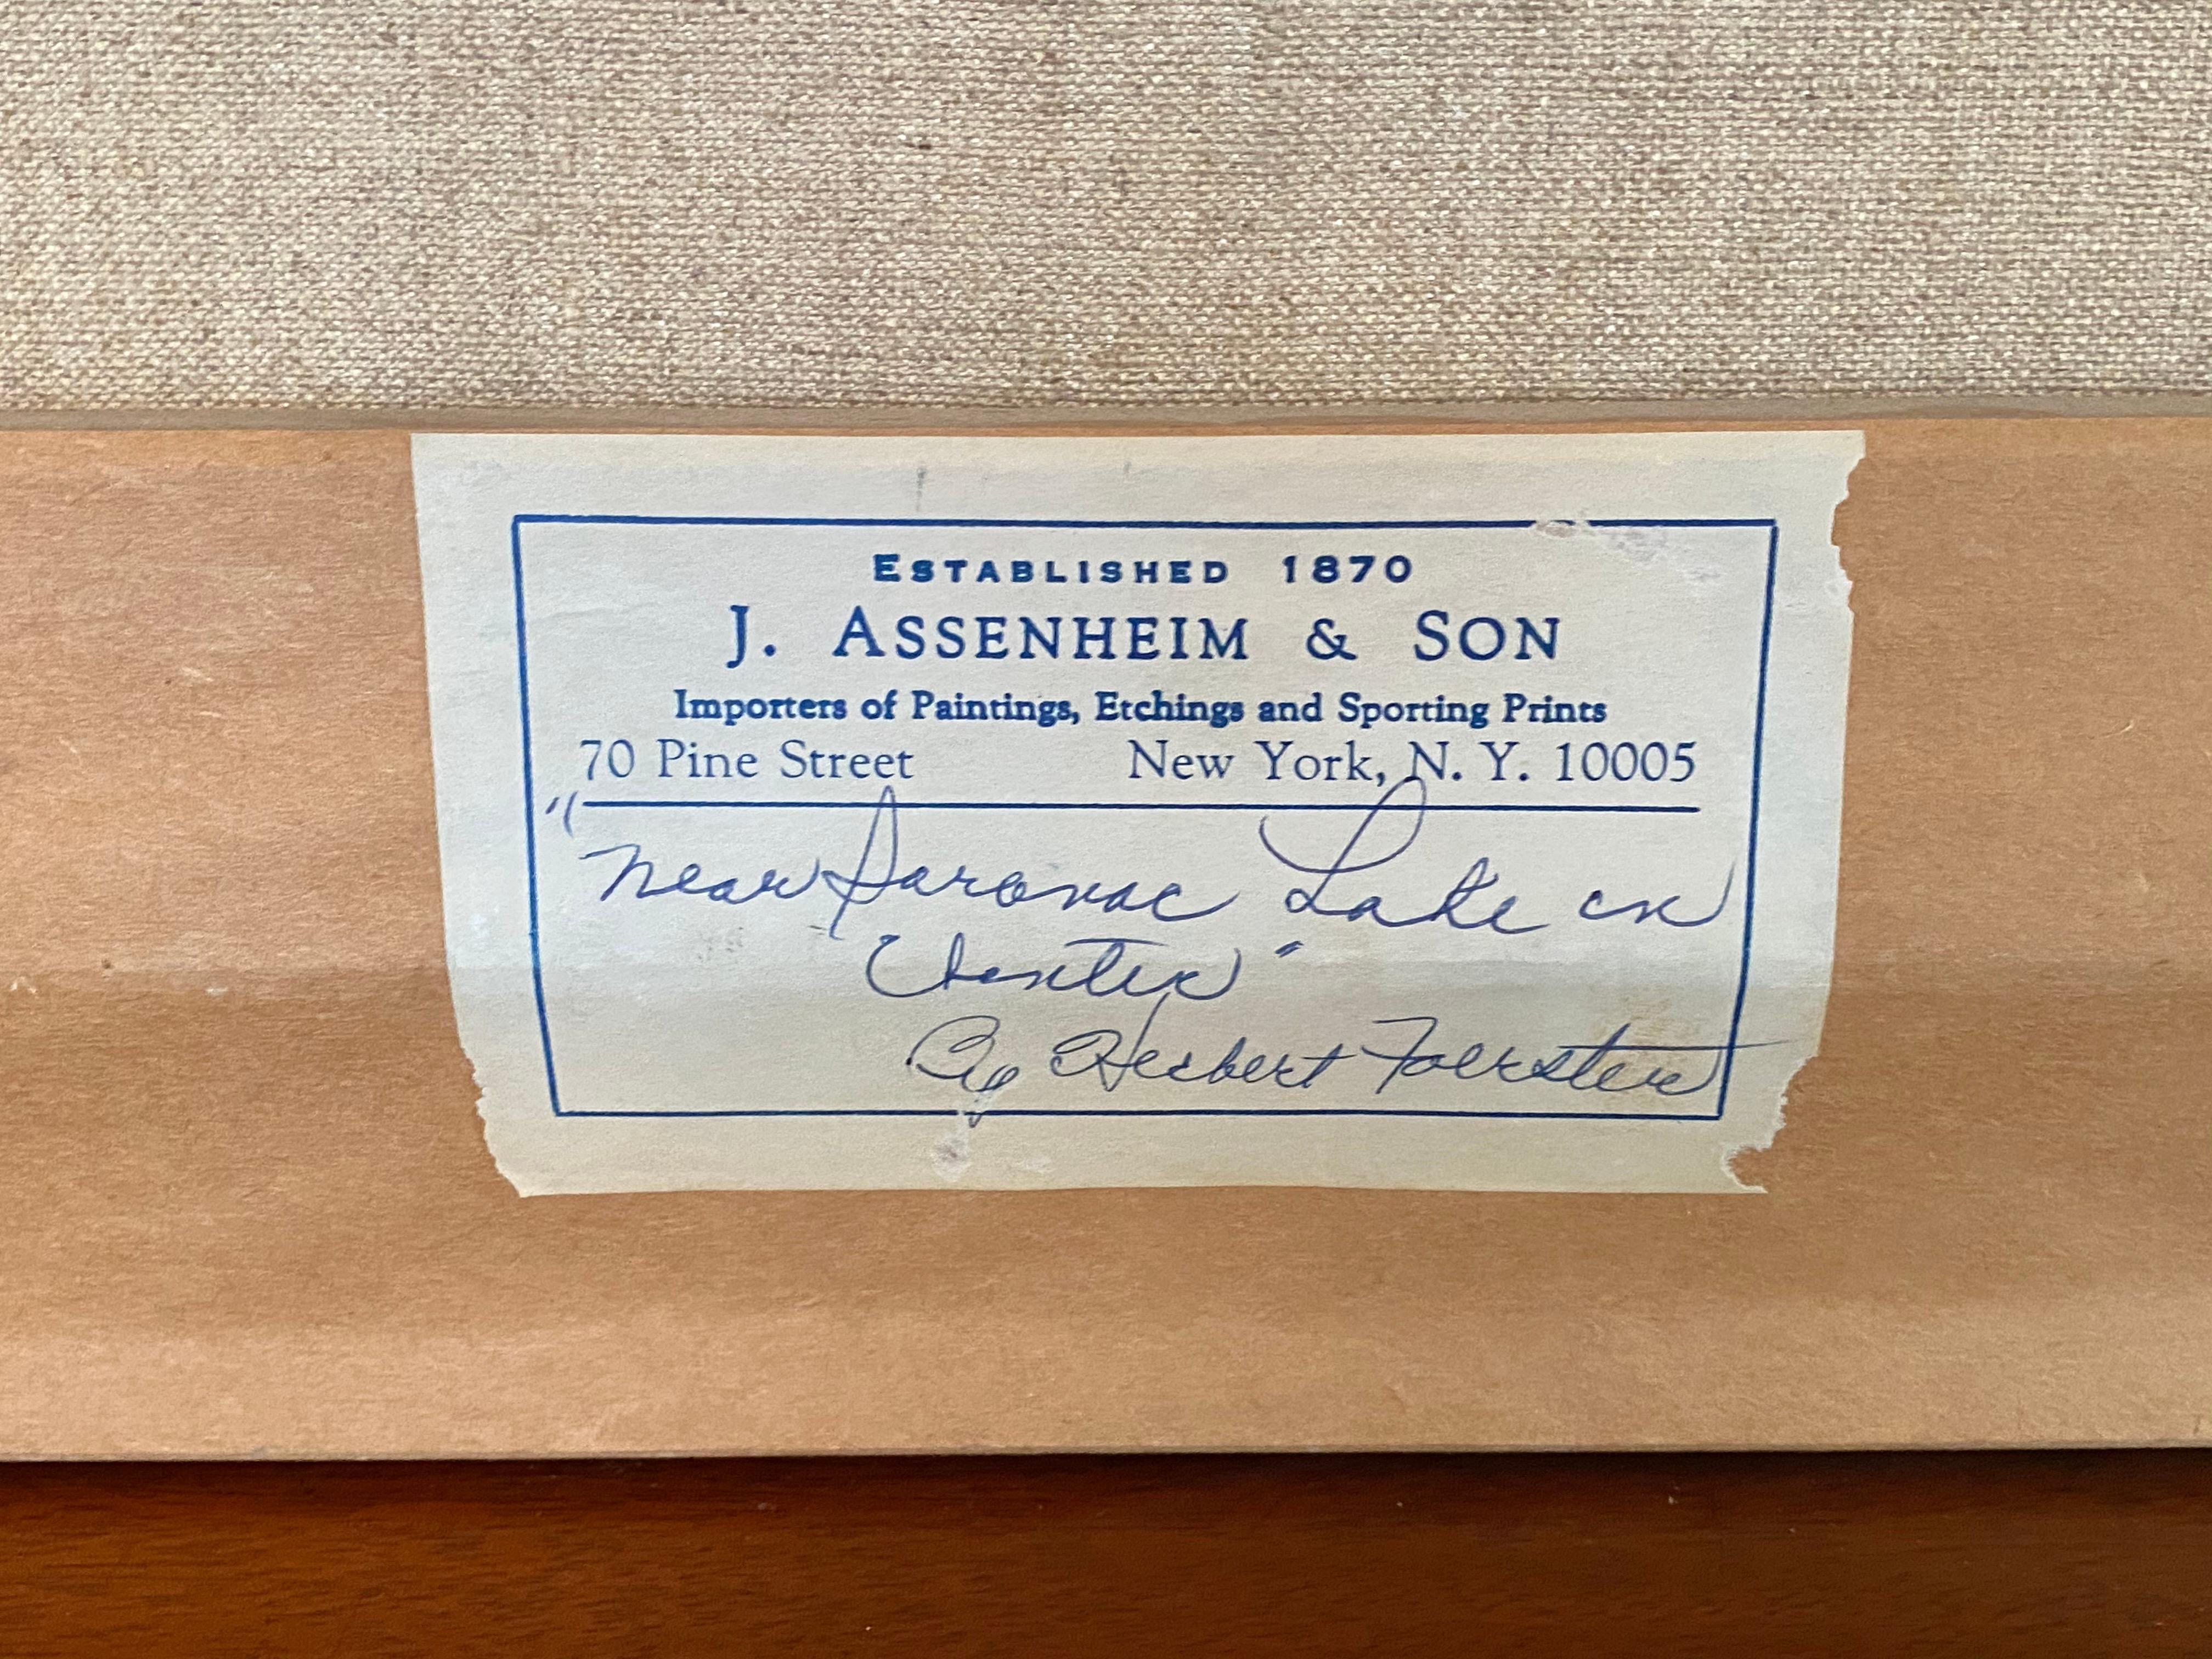 ESTABLISHED 1870
J. ASSENHEIM & SON
Importers of Paintings, Etchings and Sporting Prints
70 Pine Street New York, N. Y. 10005
"Near Saranac Lake in
Winter"
By Herbert Foerster